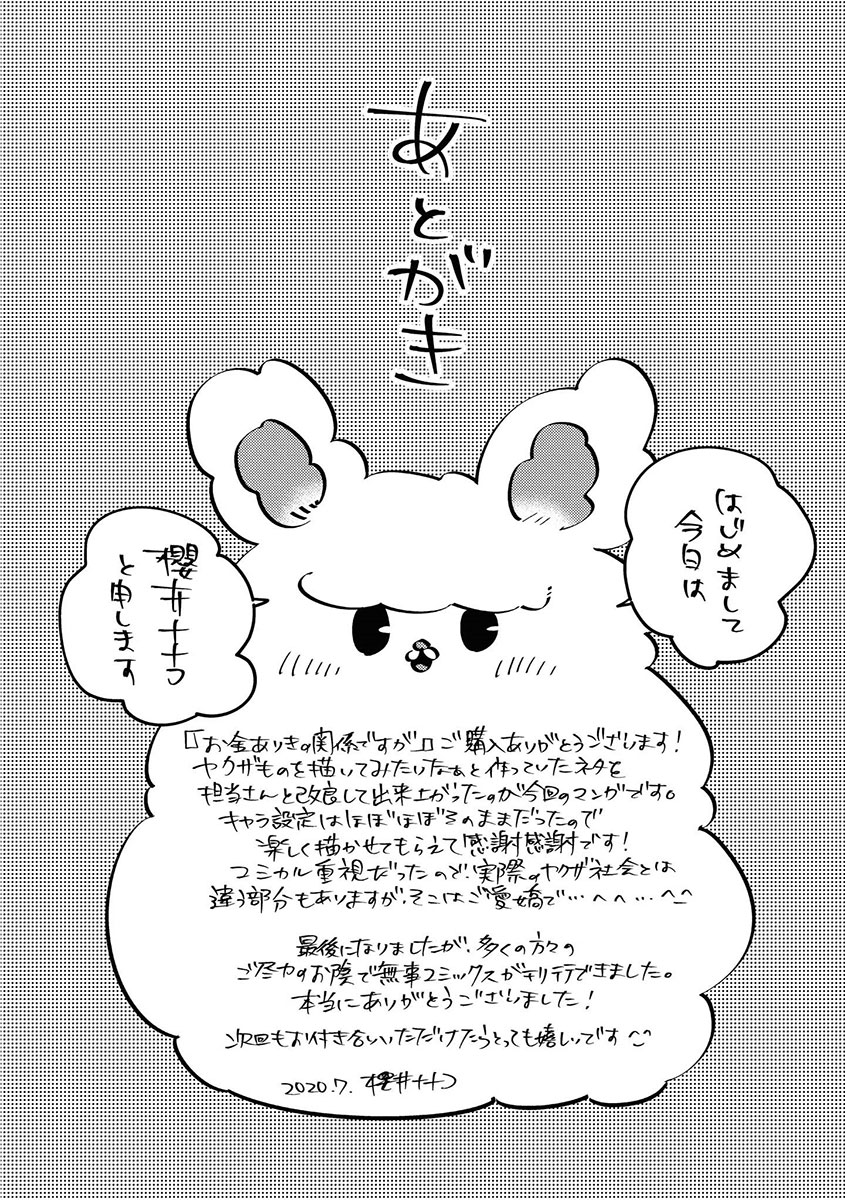 あとがき
はじめまして
今日は
櫻井ナナコ
と申します
『お金ありきの関係ですが』ご購入ありがとうございます！
ヤクザものを描いてみたいなぁと作っていたネタを
担当さんと改良して出来上がったのが今回のマンガです。
キャラ設定はほぼほぼそのままだったので
楽しく描かせてもらえて感謝感謝です！
コミカル重視だったので、実際のヤクザ社会とは
違う部分もありますが、そこはご愛嬌で…へへ…^^
最後になりましたが、多くの方々の
ご尽力のお陰で無事コミックスが
できました。
本当にありがとうございました！
次回もお付き合いいただけたらとっても嬉しいです^^
2020.7. 櫻井ナナコ